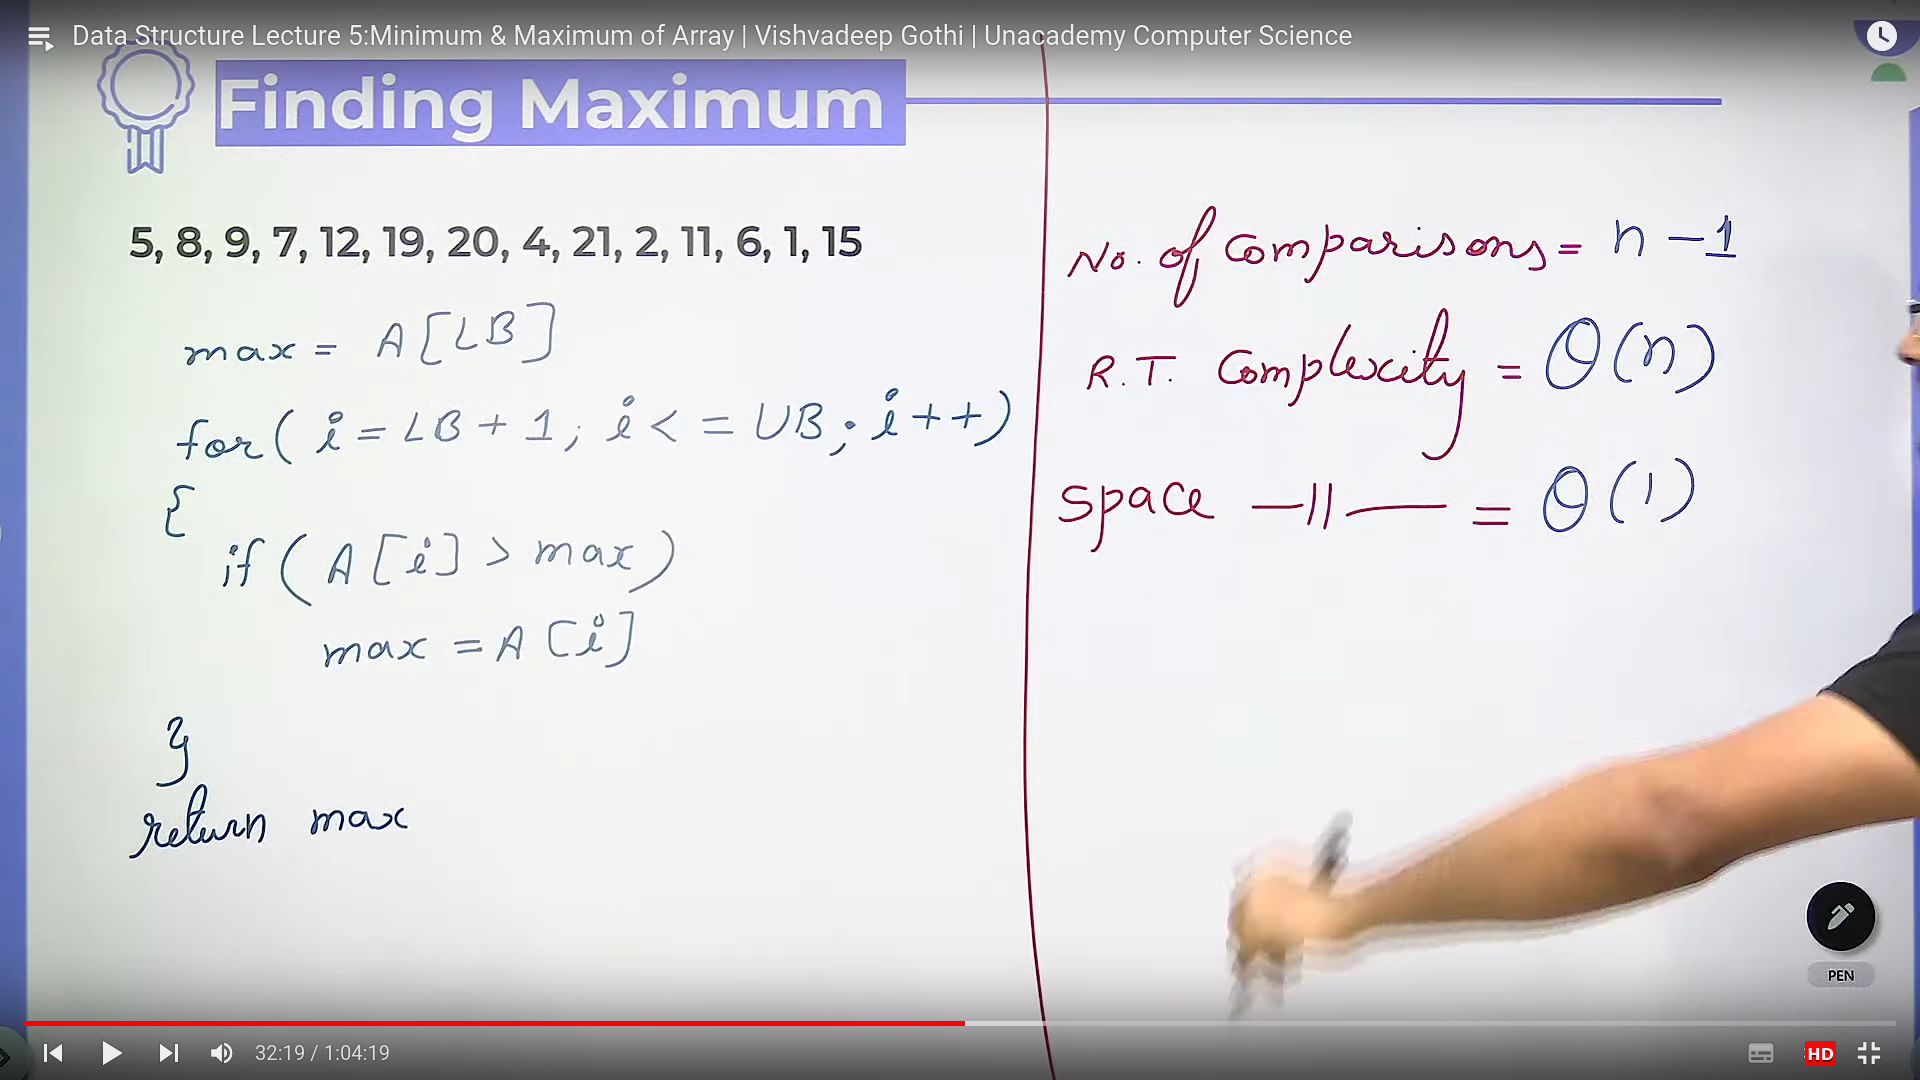 Data Structure Lecture 5:Minimum & Maximum of Array | Vishvadeep Gothi | Unacademy Computer Science
Finding Maximum
5, 8, 9, 7, 12, 19, 20, 4, 21, 2, 11, 6, 1, 15
max = A[LB]
for( i = LB + 1; i < = UB; i++)
{
if ( A[i] > max )
max = A[i]
}
return max
No. of comparisons = n - 1
R.T. Complexity = θ(n)
Space —||— = θ(1)
PEN
32:19 / 1:04:19
HD